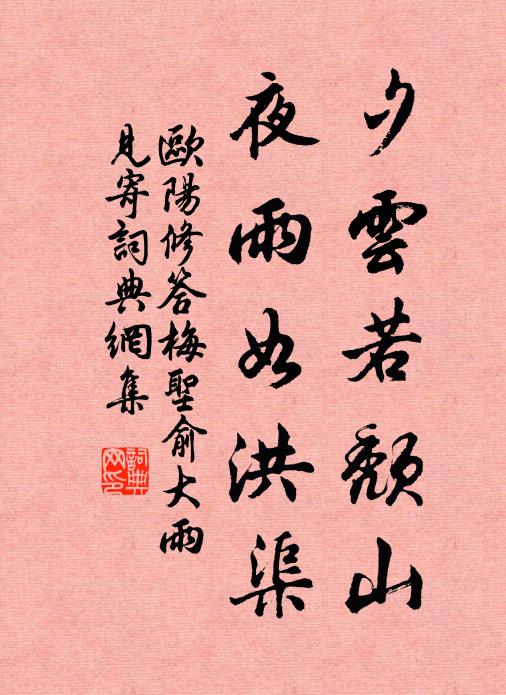 夕雲若頹山
夜雨如洪渠
歐陽修答梅聖俞大雨
見寄詞典網集
詞典
网印